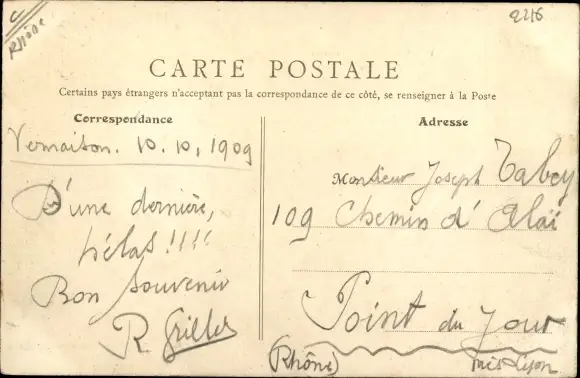 Rhône
2216
CARTE POSTALE
Certains pays étrangers n'acceptant pas la correspondance de ce côté, se renseigner à la Poste
Correspondance
Vernaison. 10.10, 1909
D'une dernière,
hélas!!!!
Bon souvenir
R
Adresse
Monsieur Joseph Tabey
109 Chemin d'Alaï
Point du Jour
(Rhône) près Lyon